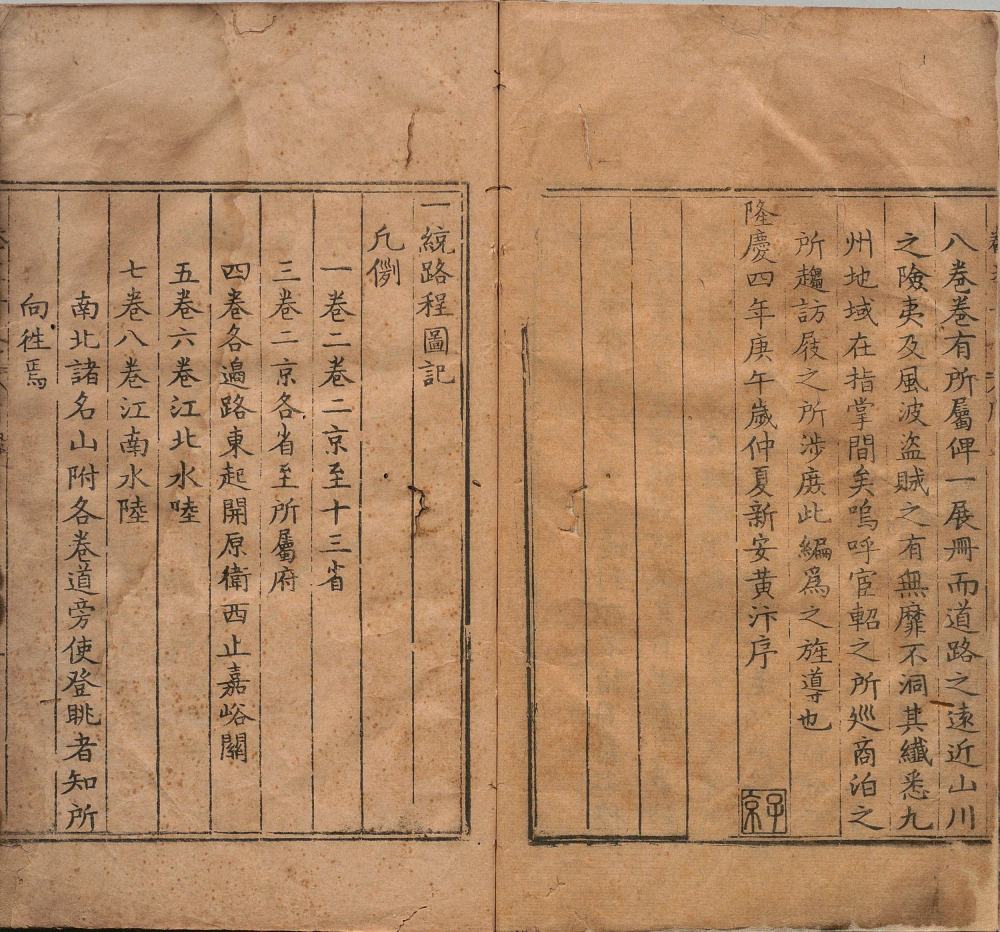 八卷卷有所屬俾一展冊而道路之遠近山川
之險夷及風波盜賊之有無靡不洞其纖悉九
州地域在指掌間矣嗚呼宦軺之所廵商泊之
所趨訪屐之所涉庻此編爲之旌導也
隆慶四年庚午歲仲夏新安黃汴序
一統路程圖記
凡例
一卷二卷二京至十三省
三卷二京各省至所屬府
四卷各邉路東起開原衛西止嘉峪關
五卷六卷江北水陸
七卷八卷江南水陸
南北諸名山附各卷道旁使登眺者知所
向徃焉